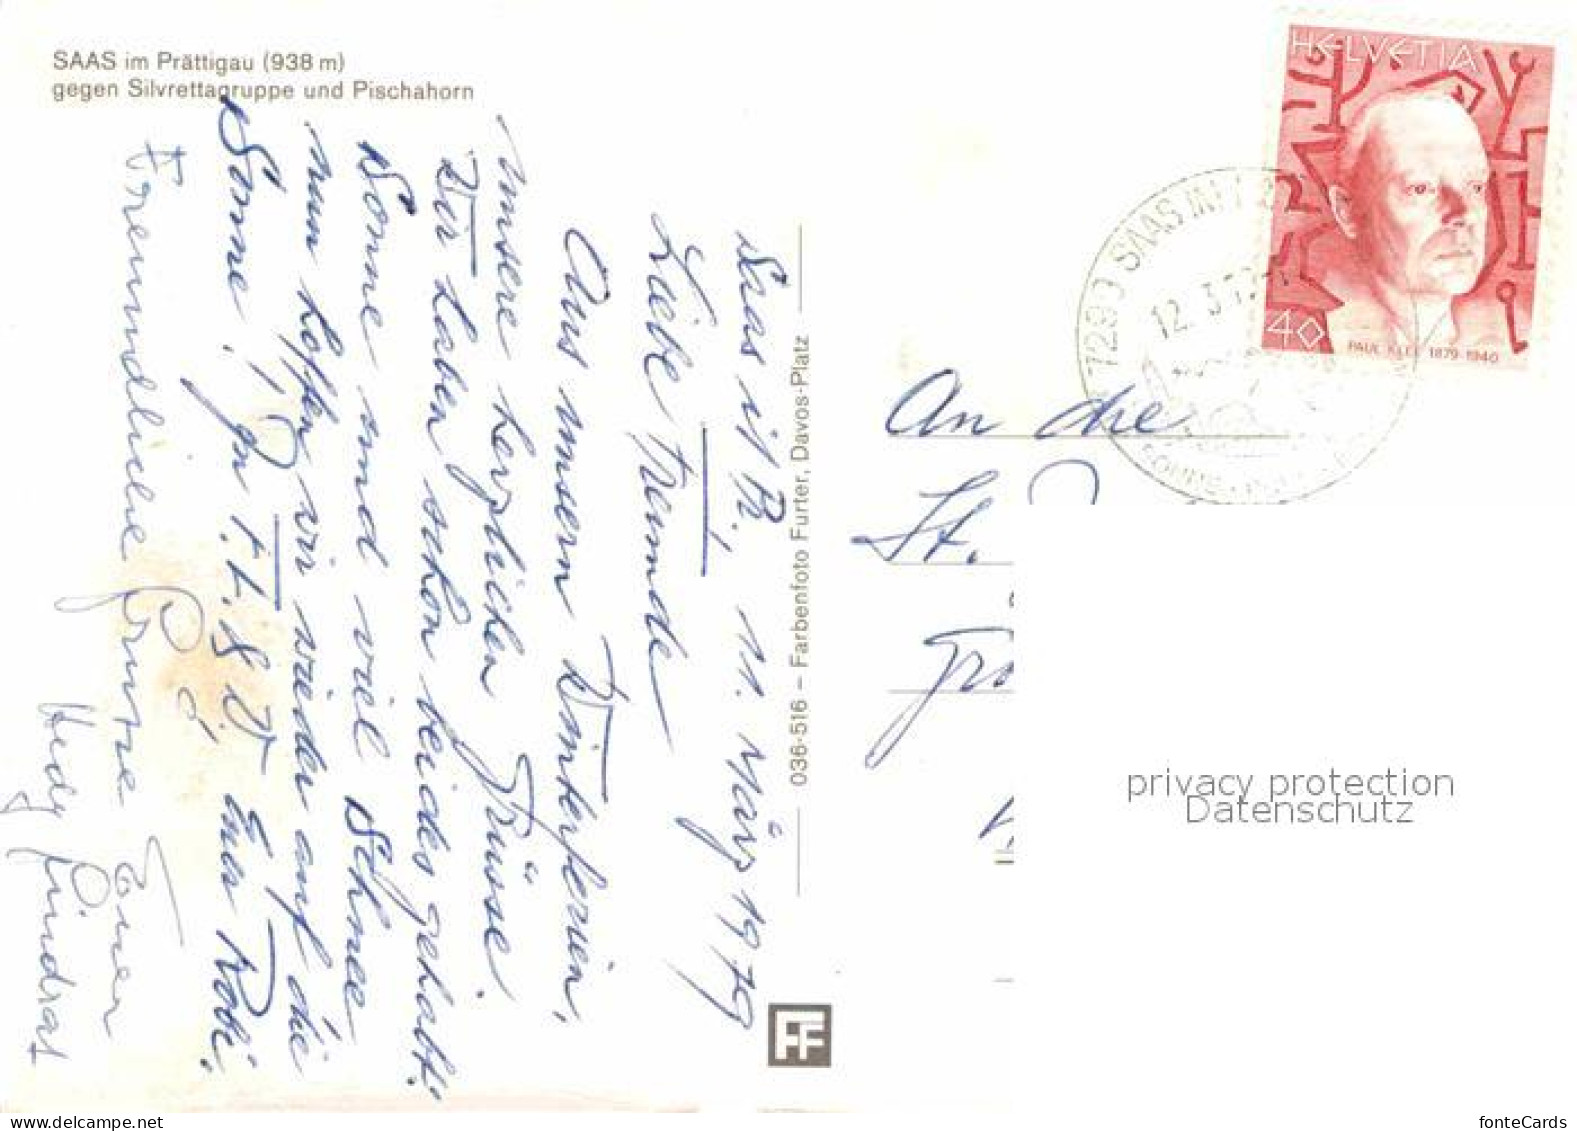 SAAS im Prättigau (938 m)
gegen Silvrettagruppe und Pischahorn
Saas i/Pr., 11. März 1979
Liebe Freunde
Aus unsern Winterferien,
unsere herzlichen Grüsse.
Wir haben schon beides gehabt:
Sonne und viel Schnee
nun hoffen wir wieder auf die
Sonne! In T.L.&W Euer Röbi
Freundliche Grüsse Euer
Hedy
036-516 – Farbenfoto Furter, Davos-Platz
FF
HELVETIA
40
PAUL KLEE 1879-1940
7299 SAAS IM
12. 3. 79
An die
St.
privacy protection
Datenschutz
www.delcampe.net
fonteCards